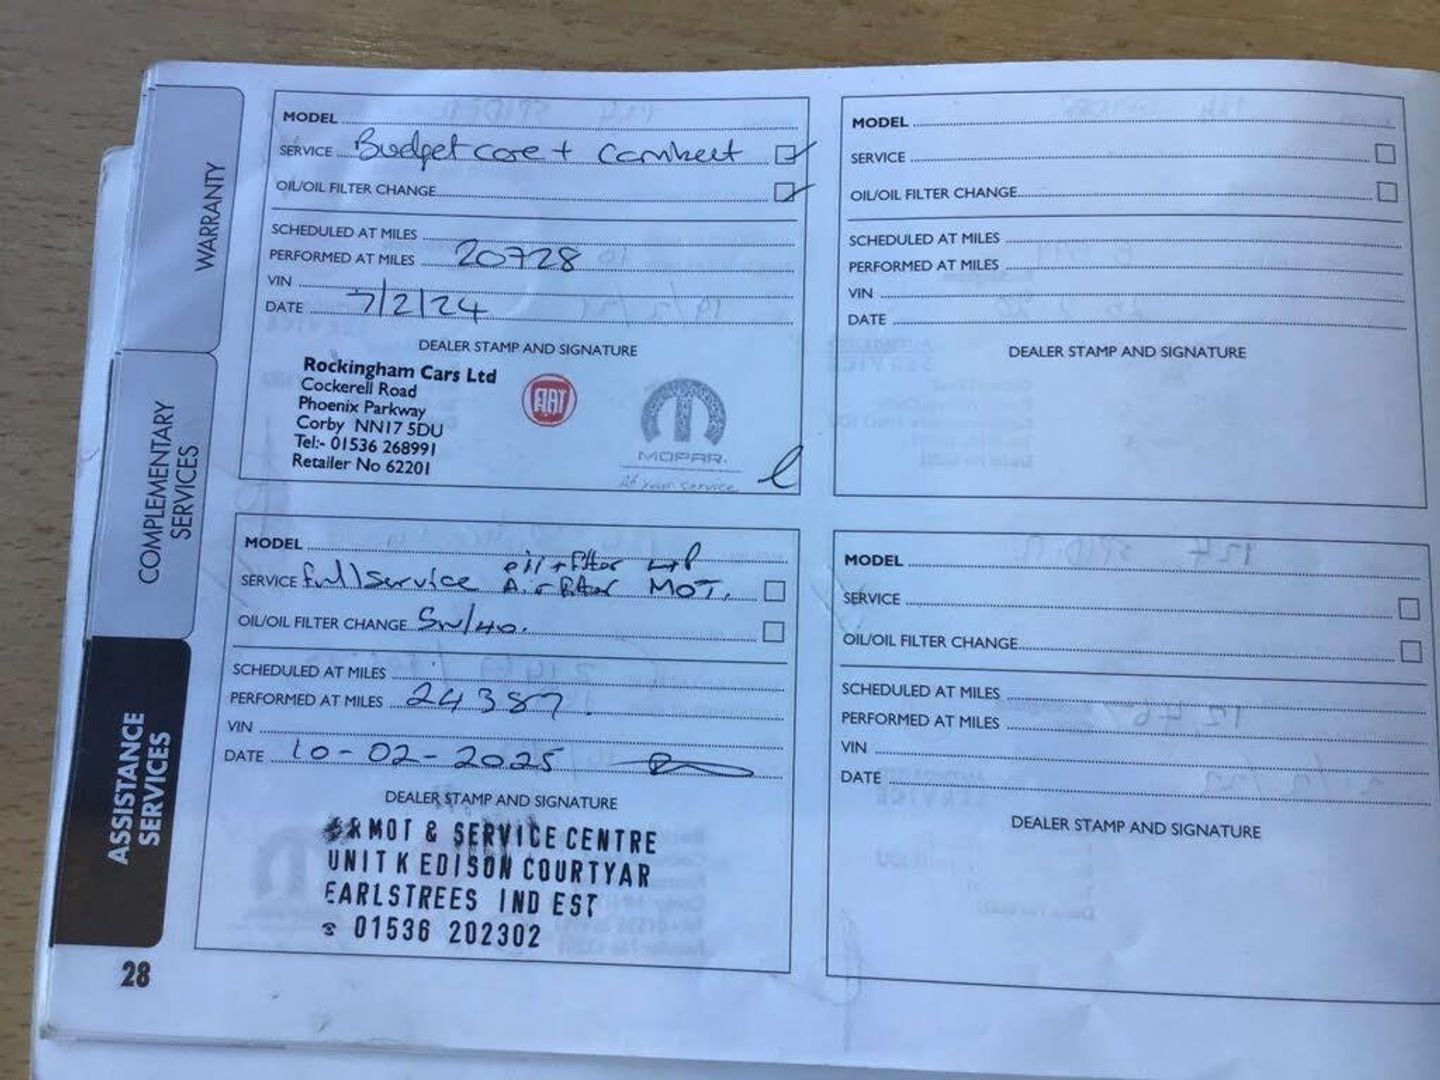 WARRANTY
COMPLEMENTARY
SERVICES
ASSISTANCE
SERVICES
28
MODEL
SERVICE Budget core + Cambelt
OIL/OIL FILTER CHANGE
SCHEDULED AT MILES
PERFORMED AT MILES 20728
VIN
DATE 7/2/24
DEALER STAMP AND SIGNATURE
Rockingham Cars Ltd
Cockerell Road
Phoenix Parkway
Corby NN17 5DU
Tel:- 01536 268991
Retailer No 62201
FIAT
MOPAR.
At Your Service
MODEL
SERVICE
OIL/OIL FILTER CHANGE
SCHEDULED AT MILES
PERFORMED AT MILES
VIN
DATE
DEALER STAMP AND SIGNATURE
MODEL
oil + filter
SERVICE full service Air filter MOT.
OIL/OIL FILTER CHANGE 5w/40.
SCHEDULED AT MILES
PERFORMED AT MILES 24387.
VIN
DATE 10-02-2025
DEALER STAMP AND SIGNATURE
MOT & SERVICE CENTRE
UNIT K EDISON COURTYAR
EARLSTREES IND EST
☎ 01536 202302
MODEL
SERVICE
OIL/OIL FILTER CHANGE
SCHEDULED AT MILES
PERFORMED AT MILES
VIN
DATE
DEALER STAMP AND SIGNATURE